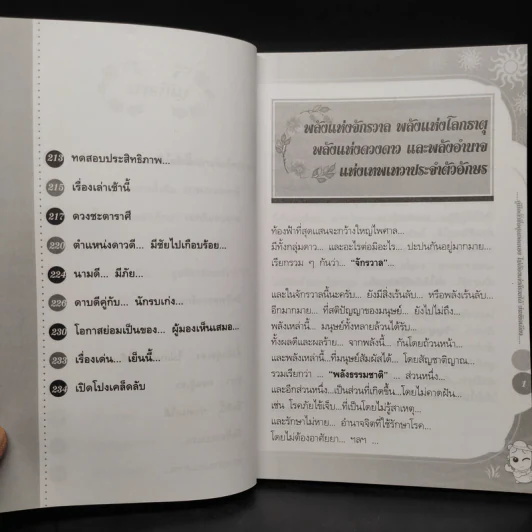 213 ทดสอบประสิทธิภาพ...
215 เรื่องเล่าเช้านี้
217 ดวงชะตาราศี
220 ตำแหน่งดาวดี... มีชัยไปเกือบร้อย...
224 นามดี... มีภัย...
226 ดาบดีคู่กับ... นักรบเก่ง...
230 โอกาสย่อมเป็นของ... ผู้มองเห็นเสมอ...
233 เรื่องเด่น... เย็นนี้...
234 เปิดโปงเคล็ดลับ
พลังแห่งจักรวาล พลังแห่งโลกธาตุ
พลังแห่งดวงดาว และพลังอำนาจ
แห่งเทพเทวาประจำตัวอักษร
ท้องฟ้าที่สุดแสนจะกว้างใหญ่ไพศาล...
มีทั้งกลุ่มดาว... และอะไรต่อมิอะไร... ปะปนกันอยู่มากมาย...
เรียกรวม ๆ กันว่า... "จักรวาล"...
และในจักรวาลนี้นะครับ... ยังมีสิ่งเร้นลับ... หรือพลังเร้นลับ...
อีกมากมาย... ที่สติปัญญาของมนุษย์... ยังไปไม่ถึง
พลังเหล่านี้... มนุษย์ทั้งหลายล้วนได้รับ...
ทั้งผลดีและผลร้าย... จากพลังนี้... กันโดยถ้วนหน้า...
และพลังเหล่านี้...ที่มนุษย์สัมผัสได้... โดยสัญชาติญาณ...
รวมเรียกว่า ... "พลังธรรมชาติ" ... ส่วนหนึ่ง...
และอีกส่วนหนึ่ง...เป็นส่วนที่เกิดขึ้น...โดยไม่คาดฝัน...
เช่น โรคภัยไข้เจ็บ...ที่เป็นโดยไม่รู้สาเหตุ...
และรักษาไม่หาย... อำนาจจิตที่ใช้รักษาโรค...
โดยไม่ต้องอาศัยยา... ฯลฯ ...